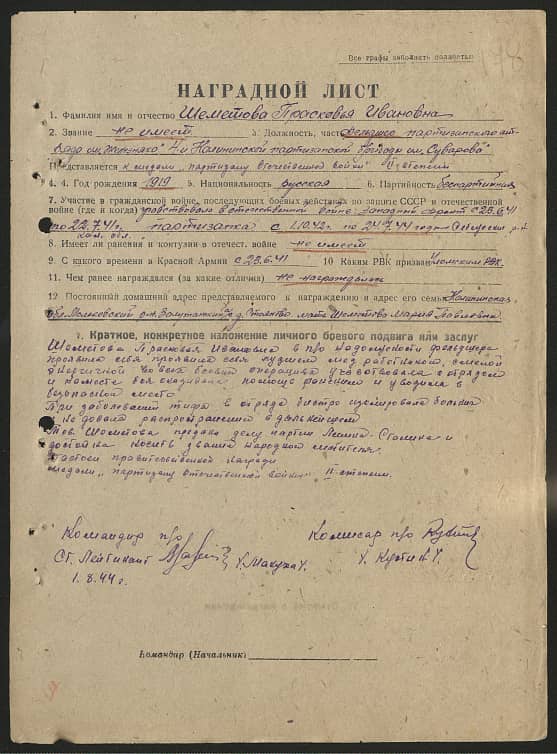 Все графы заполнять полностью
178
НАГРАДНОЙ ЛИСТ
1. Фамилия имя и отчество Шеметова Прасковья Ивановна
2. Звание не имеет 3. Должность, часть фельдшер партизанского от-
4й Калининской партизанской бригады им. Суворова
Представляется к медали „партизану отечественной войны" II степени
4. 4. Год рождения 1919 5. Национальность русская 6. Партийность беспартийная
7. Участие в гражданской войне, последующих боевых действиях по защите СССР и отечественной
войне (где и когда) участвовала в отечественной войне западный фронт с 28.6.41
по 22.7.41г. партизанка с 1.10.42г по 24.7.44 года
кал. обл.
8. Имеет ли ранения и контузии в отечест. войне не имеет
9. С какого времени в Красной Армии с 28.6.41 10 Каким РВК призван РВК
11. Чем ранее награждался (за какие отличия) не награждалась
12 Постоянный домашний адрес представляемого к награждению и адрес его семьи Калининская
обл. р-н. д. мать Шеметова Мария Павловна
1. Краткое, конкретное изложение личного боевого подвига или заслуг
Шеметова Прасковья Ивановна в п/о в должности фельдшера
проявила себя лучшим мед. работником, смелой
энергичной во всех боевых операциях участвовала с отрядом
и на месте боя оказывала помощь раненым и уводила в
безопасное место
При заболевании тифа в отряде быстро изолировала больных
и не давала распространения в дальнейшем
Тов. Шеметова предана делу партии Ленина-Сталина и
достойна носить звание народной мстителя.
Достойна правительственной награды
медали „партизану отечественной войны" II степени.
Командир п/о Комисар п/о
Ст. Лейтинант У. Макуха У. У.
1.8.44г.
Командир (Начальник)